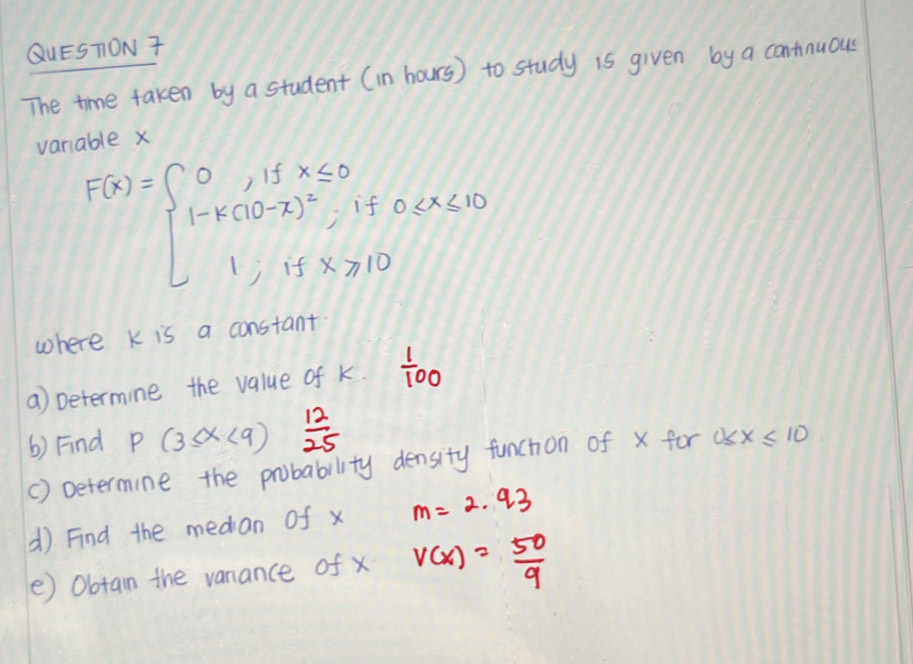 QUESTION 7
The time taken by a student (in hours) to study is given by a continuous
variable x
F(x) = { 0 , if x ≤ 0
1-K(10-x)² ; if 0≤x≤10
1 ; if x ≥ 10
where K is a constant.
a) Determine the value of K. 1/100
b) Find P (3≤x<9) 12/25
c) Determine the probability density function of x for 0≤x≤10
d) Find the median of x m = 2.93
e) Obtain the variance of x V(x) = 50/9